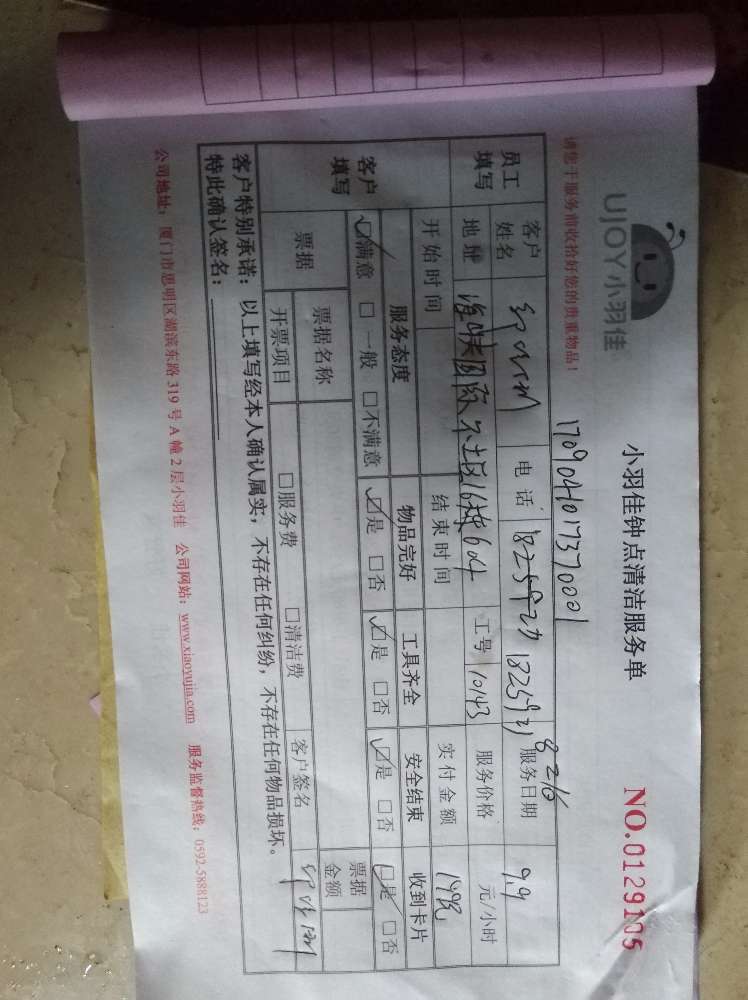 UJOY小羽佳
小羽佳钟点清洁服务单
NO.0129105
1709041017370001
请您于服务前收拾好您的贵重物品！
员工填写
客户姓名
电话
服务日期 9.9
地址
工号 10143
服务价格 元/小时
开始时间
结束时间
实付金额
客户填写
服务态度
物品完好
工具齐全
安全结束
收到卡片
☑满意 □一般 □不满意
☑是 □否
☑是 □否
☑是 □否
☑是 □否
票据
票据名称
票据金额
开票项目
□服务费
□清洁费
客户签名
客户特别承诺：以上填写经本人确认属实，不存在任何纠纷，不存在任何物品损坏。
特此确认签名：
公司地址：厦门市思明区湖滨东路319号A幢2层小羽佳 公司网站：www.xiaoyujia.com 服务监督热线：0592-5888123